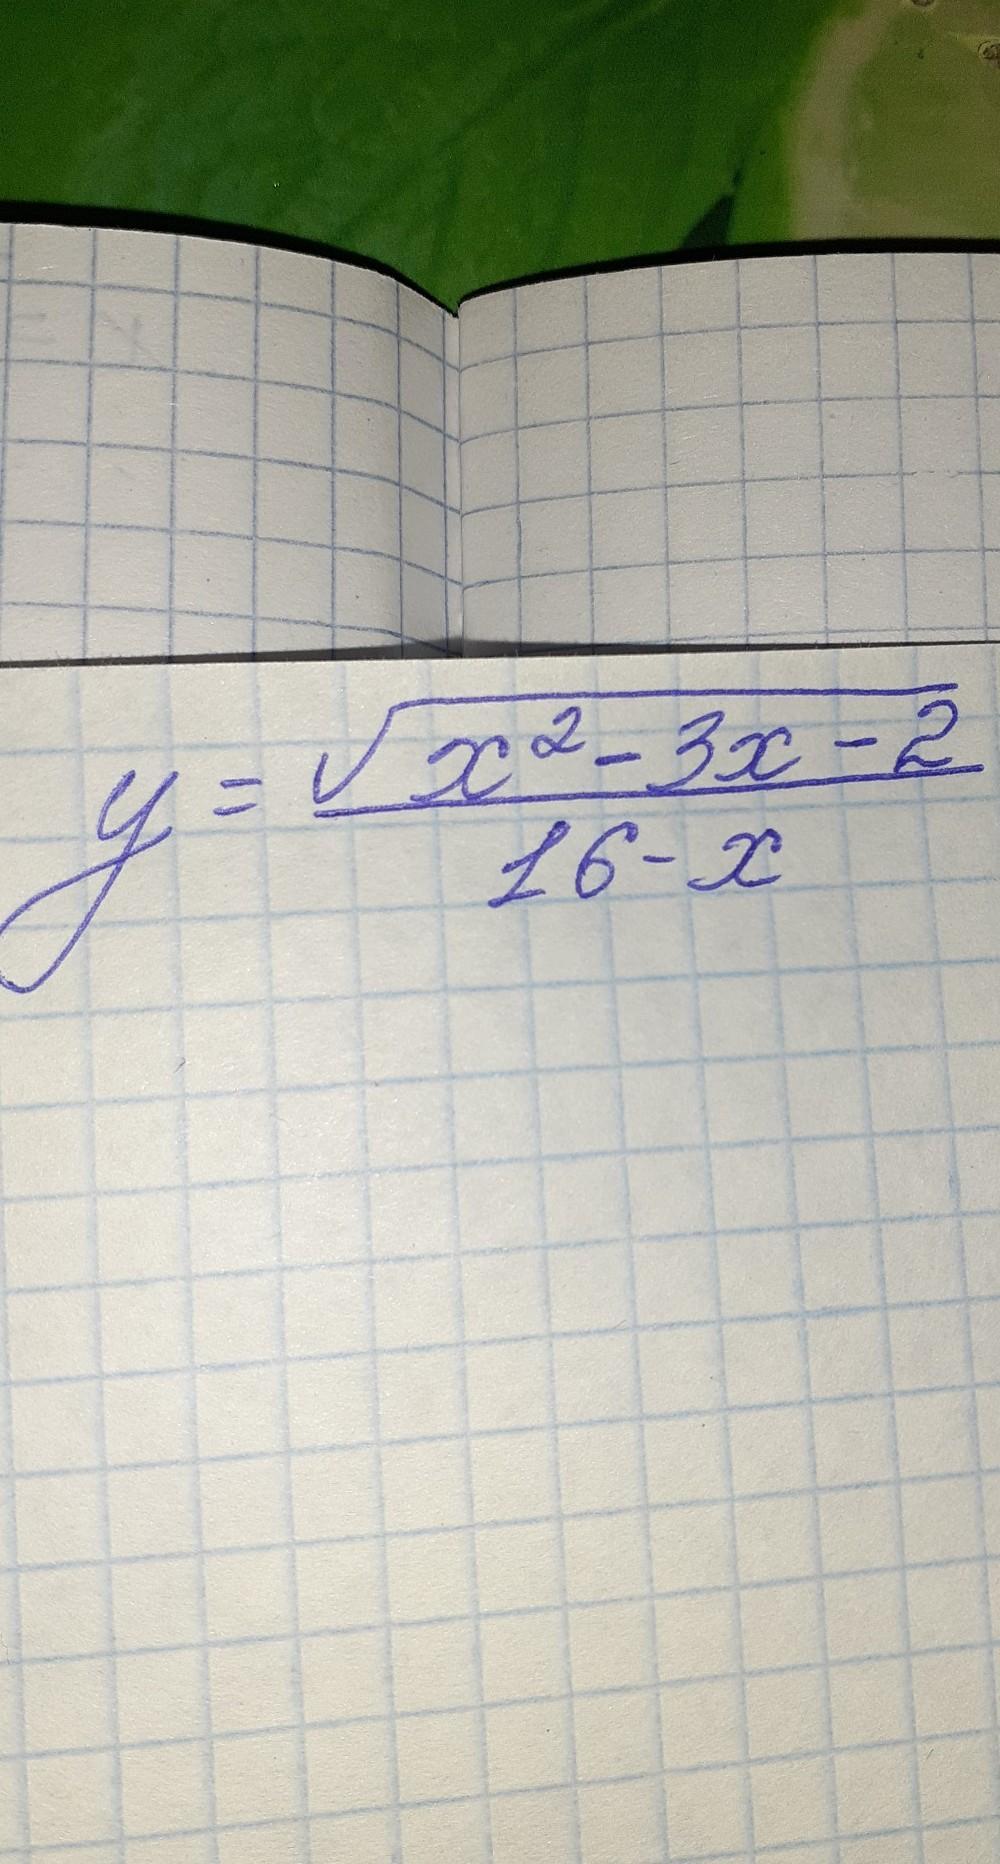 y = \frac{\sqrt{x^2 - 3x - 2}}{16 - x}